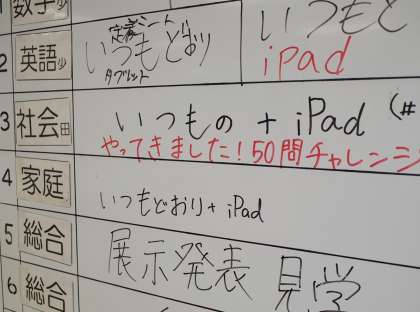 数学少
いつもと
2 英語少 定着シート いつもどおり タブレット iPad
3 社会田 いつもの + iPad (#
やってきました!50問チャレンジ
4 家庭 いつもどおり+ iPad
5 総合 展示発表 見学
6 総合